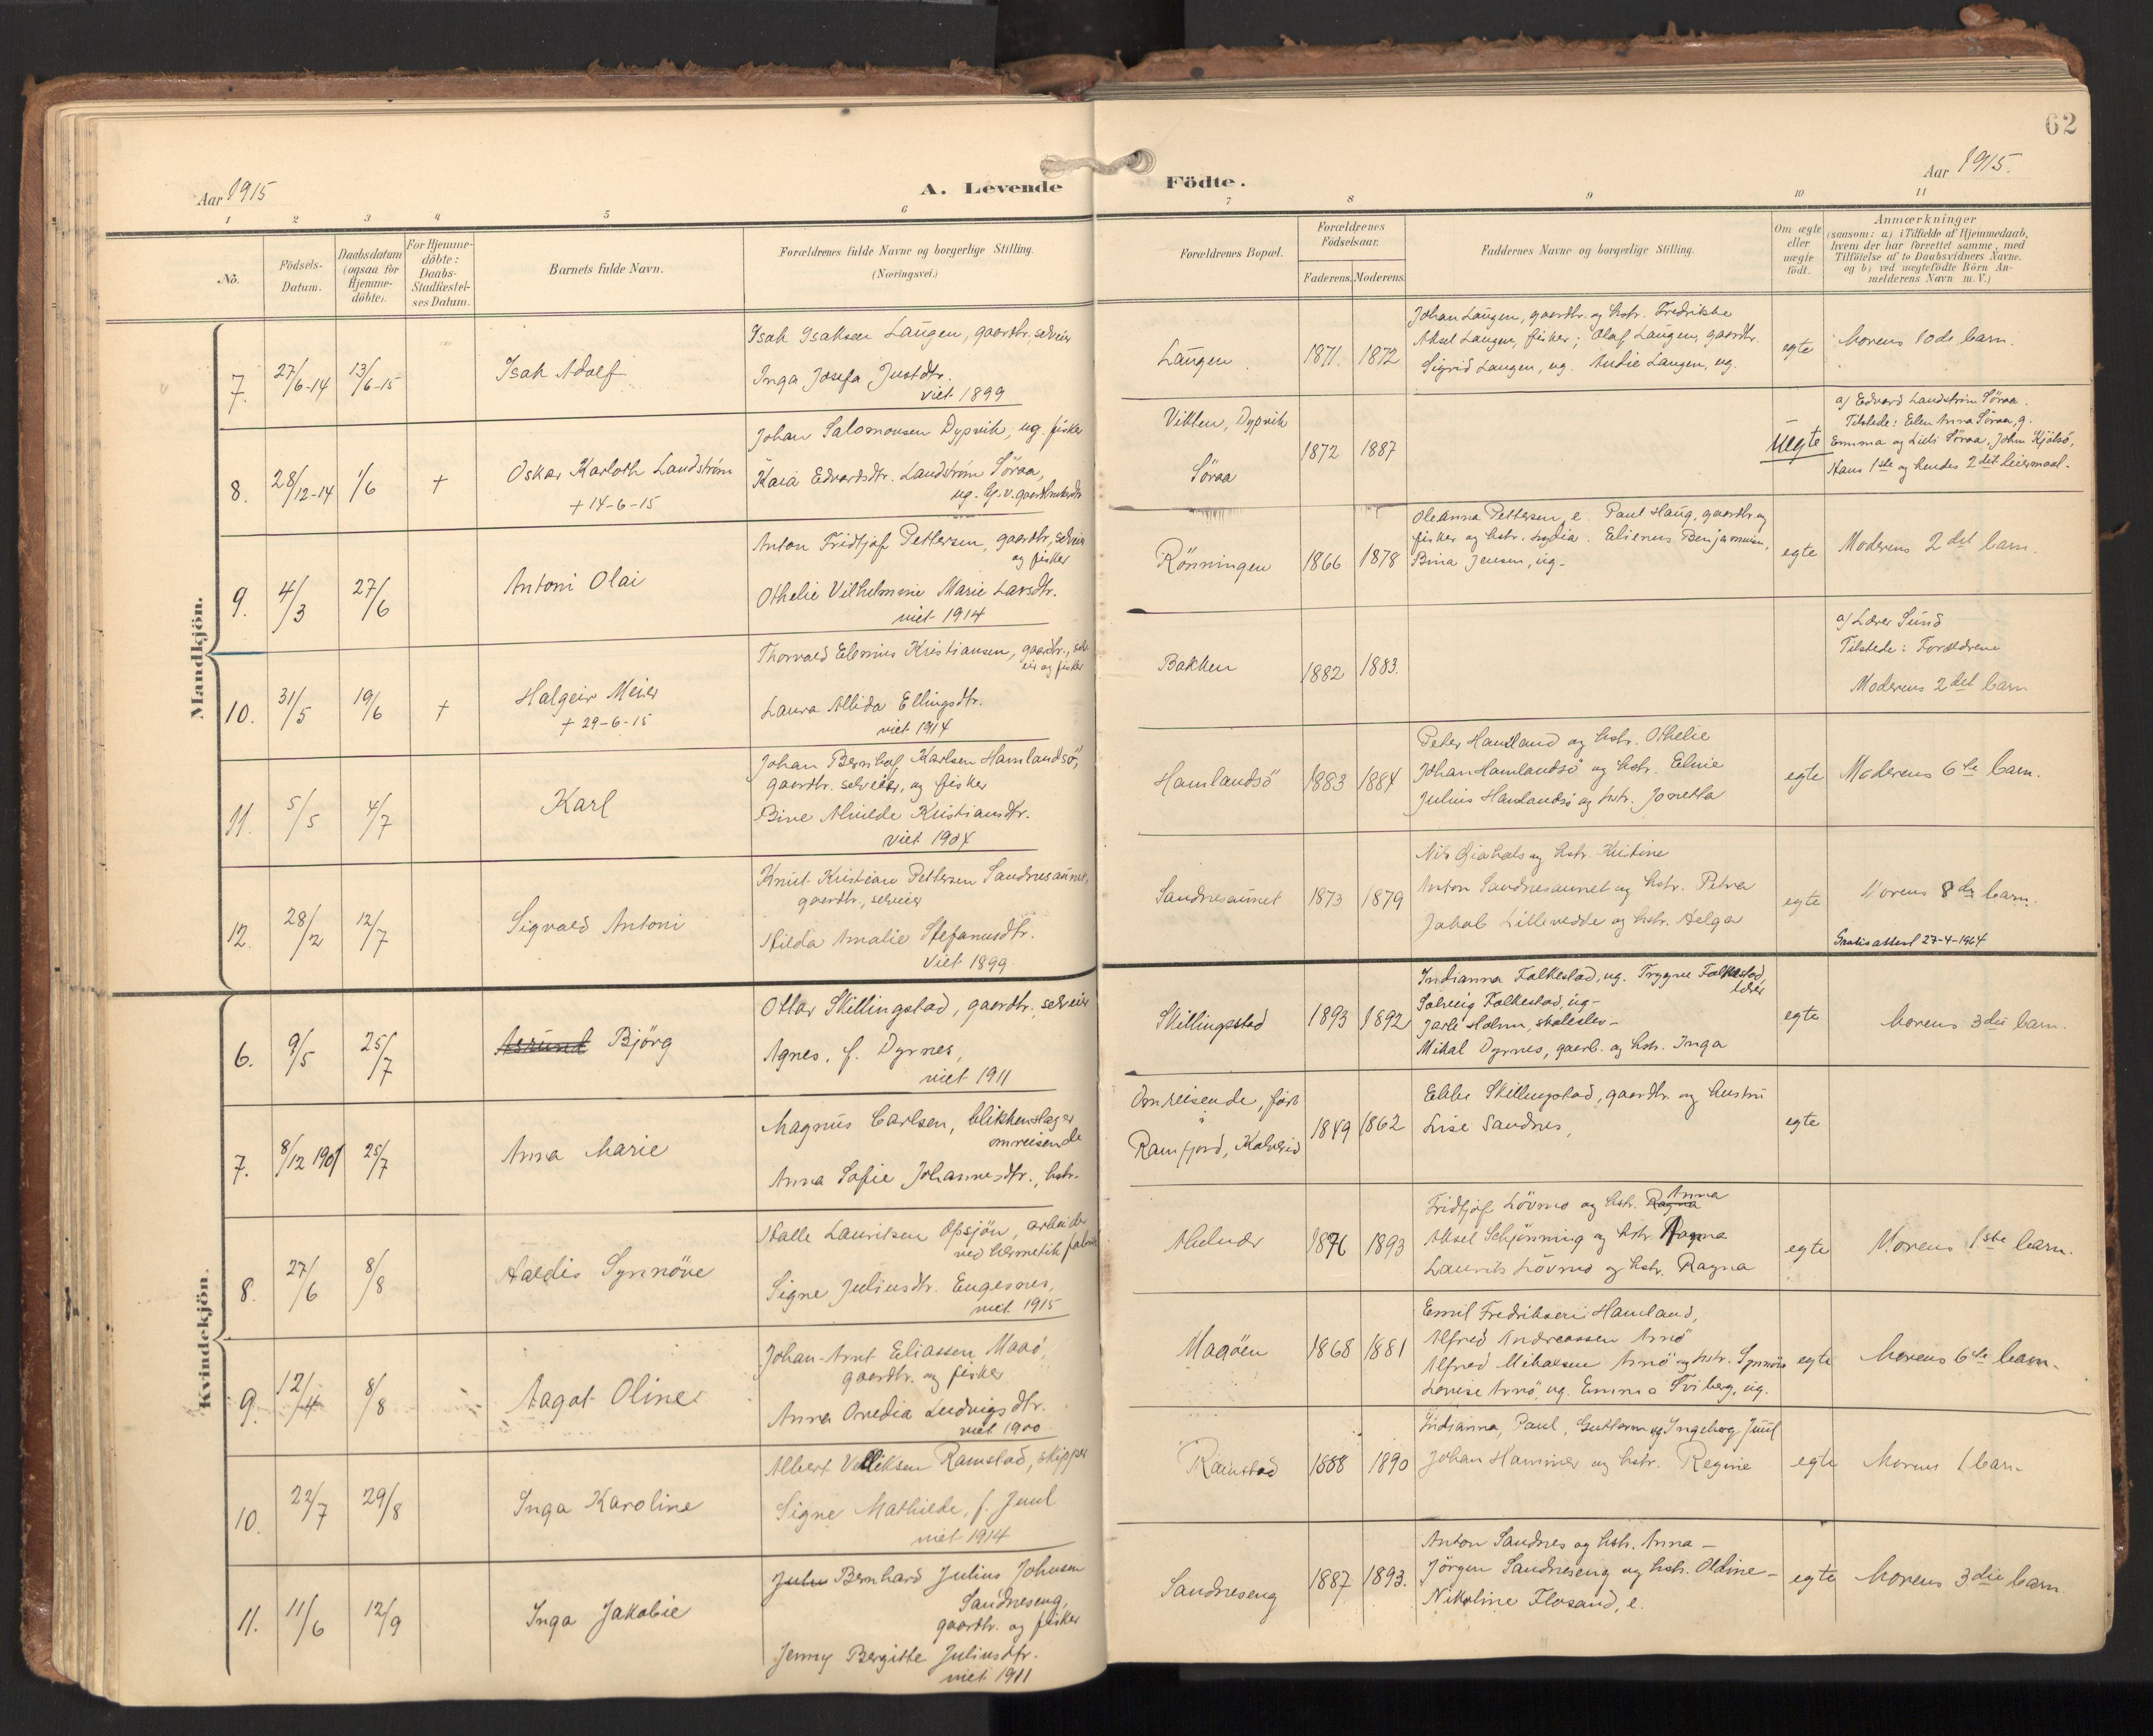 62
Aar 1915
A. Levende
Födte.
Aar 1915.
1 2 3 4 5 6 7 8 9 10 11
No.
Födsels-
Datum.
Daabsdatum
(ogsaa for
Hjemme-
döbte).
For Hjemme-
döbte:
Daabs-
Stadfæstel-
ses Datum.
Barnets fulde Navn.
Forældrenes fulde Navne og borgerlige Stilling.
(Næringsvei.)
Forældrenes Bopæl.
Forældrenes
Födselsaar.
Faderens. Moderens.
Faddernes Navne og borgerlige Stilling.
Om ægte
eller
uægte
födt.
Anmærkninger
(saasom: a) i Tilfælde af Hjemmedaab,
hvem der har forrettet samme, med
Tilföielse af to Daabsvidners Navne.
og b) ved uægtefödte Börn An-
melderens Navn m. V.)
Mandkjön.
7.
27/6-14
13/6-15
Isak Adolf
Isak Isaksen Laugen, gaardbr, selveier
Inga Josefa Justdtr.
viet 1899
Laugen
1871. 1872
Johan Laugen, gaardbr. og hstr. Fredrikke
Aksel Laugen, fisker; Olaf Laugen, gaardbr.
Sigrid Laugen, ug. Andie Laugen, ug.
egte
Morens 10de barn.
8.
28/12-14
1/6
+
Oskar Karloth Landström
+ 14-6-15
Johan Salomonsen Dypvik, ug. fisker
Kaia Edvardsdtr. Landström Söraa,
Vikten, Dypvik
Söraa
1872 1887
Uegte
a) Edvard Landström Söraa.
Tilstede: Elen Anna Söraa, g.
Emma og Lilli Söraa, John Kjölsö,
Hans 1ste og hendes 2det leiermaal.
9.
4/3
27/6
Antoni Olai
Anton Fridtjof Pettersen, gaardbr, selveier
og fisker
Othelie Vilhelmine Marie Larsdtr.
viet 1914
Rönningen
1866 1878
Oleanna Pettersen, e. Paul Haug, gaardbr og
fisker og hstr. Lydia. Elienus Benjaminsen,
Bina Jensen, ug.
egte
Moderens 2det barn.
10.
31/5
19/6
+
Halgeir Meier
+ 29-6-15
Thorvald Elenius Kristiansen, gaardbr., selv
eier og fisker
Laura Alida Ellingsdtr.
viet 1914
Bakken
1882 1883.
a) Lærer Sund
Tilstede: Forældrene
Moderens 2det barn
11.
5/5
4/7
Karl
Johan Bernhof Karlsen Hamlandsö,
gaardbr. selveier, og fisker
Bine Alvilde Kristiansdtr.
viet 1904
Hamlandsö
1883 1884
Peter Hamland og hstr. Othelie
Johan Hamlandsö og hstr. Elnie
Julius Hamlandsö og hstr. Jonetta
egte
Moderens 6te barn.
12.
28/2
12/7
Sigvald Antoni
Knut Kristian Pettersen Sandnesaunet,
gaardbr., selveier
Hilda Amalie Stefanusdtr.
Viet 1899
Sandnesaunet
1873 1879
Nils Gjahals og hstr. Kristine
Anton Sandnesaunet og hstr. Petra
Jakob Lillevedde og hstr. Helga
egte
Morens 8de barn.
Gratisattest 27-4-1964
Kvindekjön.
6.
9/5
25/7
Bjorg
Ottar Skillingstad, gaardbr., selveier
Agnes, f. Dyrnes,
viet 1911
Skillingstad
1893 1892
Indianna Falkestad, ug. Trygve Falkestad,
lærer
Solveig Falkestad, ug-
Jarle Holm, skoleelev-
Mikal Dyrnes, gaarb. og hstr. Inga
egte
Morens 3die barn.
7.
8/12 1901
25/7
Anna Marie
Magnus Carlsen, blikkenslager
omreisende
Anna Sofie Johannesdtr., hstr.
Omreisende, født
i
Ramfjord, Kolvereid
1849 1862
Ebbe Skillingstad, gaardbr. og hustru
Lise Sandnes,
egte
8.
27/6
8/8
Haldis Synnöve
Halle Lauritsen Opsjön, arbeider
ved hermetikfabrik
Signe Juliusdtr. Engesnes,
viet 1915
1876 1893
Fridtjof Lövmo og hstr. Ragna Anna
Aksel Schjönning og hstr. Ragna
Laurits Lövmo og hstr. Ragna
egte
Morens 1ste barn.
9.
12/4
8/8
Aagot Oline
Johan Arnt Eliassen Maaö,
gaardbr. og fisker
Anna Ovedia Ludvigsdtr.
viet 1900
Maaöen
1868 1881
Emil Fredriksen Hamland,
Alfred Andreassen Arnö
Alfred Mikalsen Arnö og hstr. Synnöve
Lovise Arnö, ug. Emma Friberg, ug.
egte
Morens 6te barn.
10.
22/7
29/8
Inga Karoline
Albert Ramstad, skipper
Signe Mathilde, f. Juul
viet 1914
Ramstad
1888 1890
Indianna, Paul, Guttorm og Ingeborg Juul
Johan Hammer og hstr. Regine
egte
Morens 1 barn
11.
11/6
12/9
Inga Jakobie
Bernhard Julius Johnsen
Sandneseng,
gaardbr. og fisker
Jenny Bergitte Juliusdtr.
viet 1911
Sandneseng
1887 1893.
Anton Sandnes og hstr. Anna -
Jörgen Sandneseng og hstr. Oldine -
Nikoline Flosand, e.
egte
Morens 3die barn